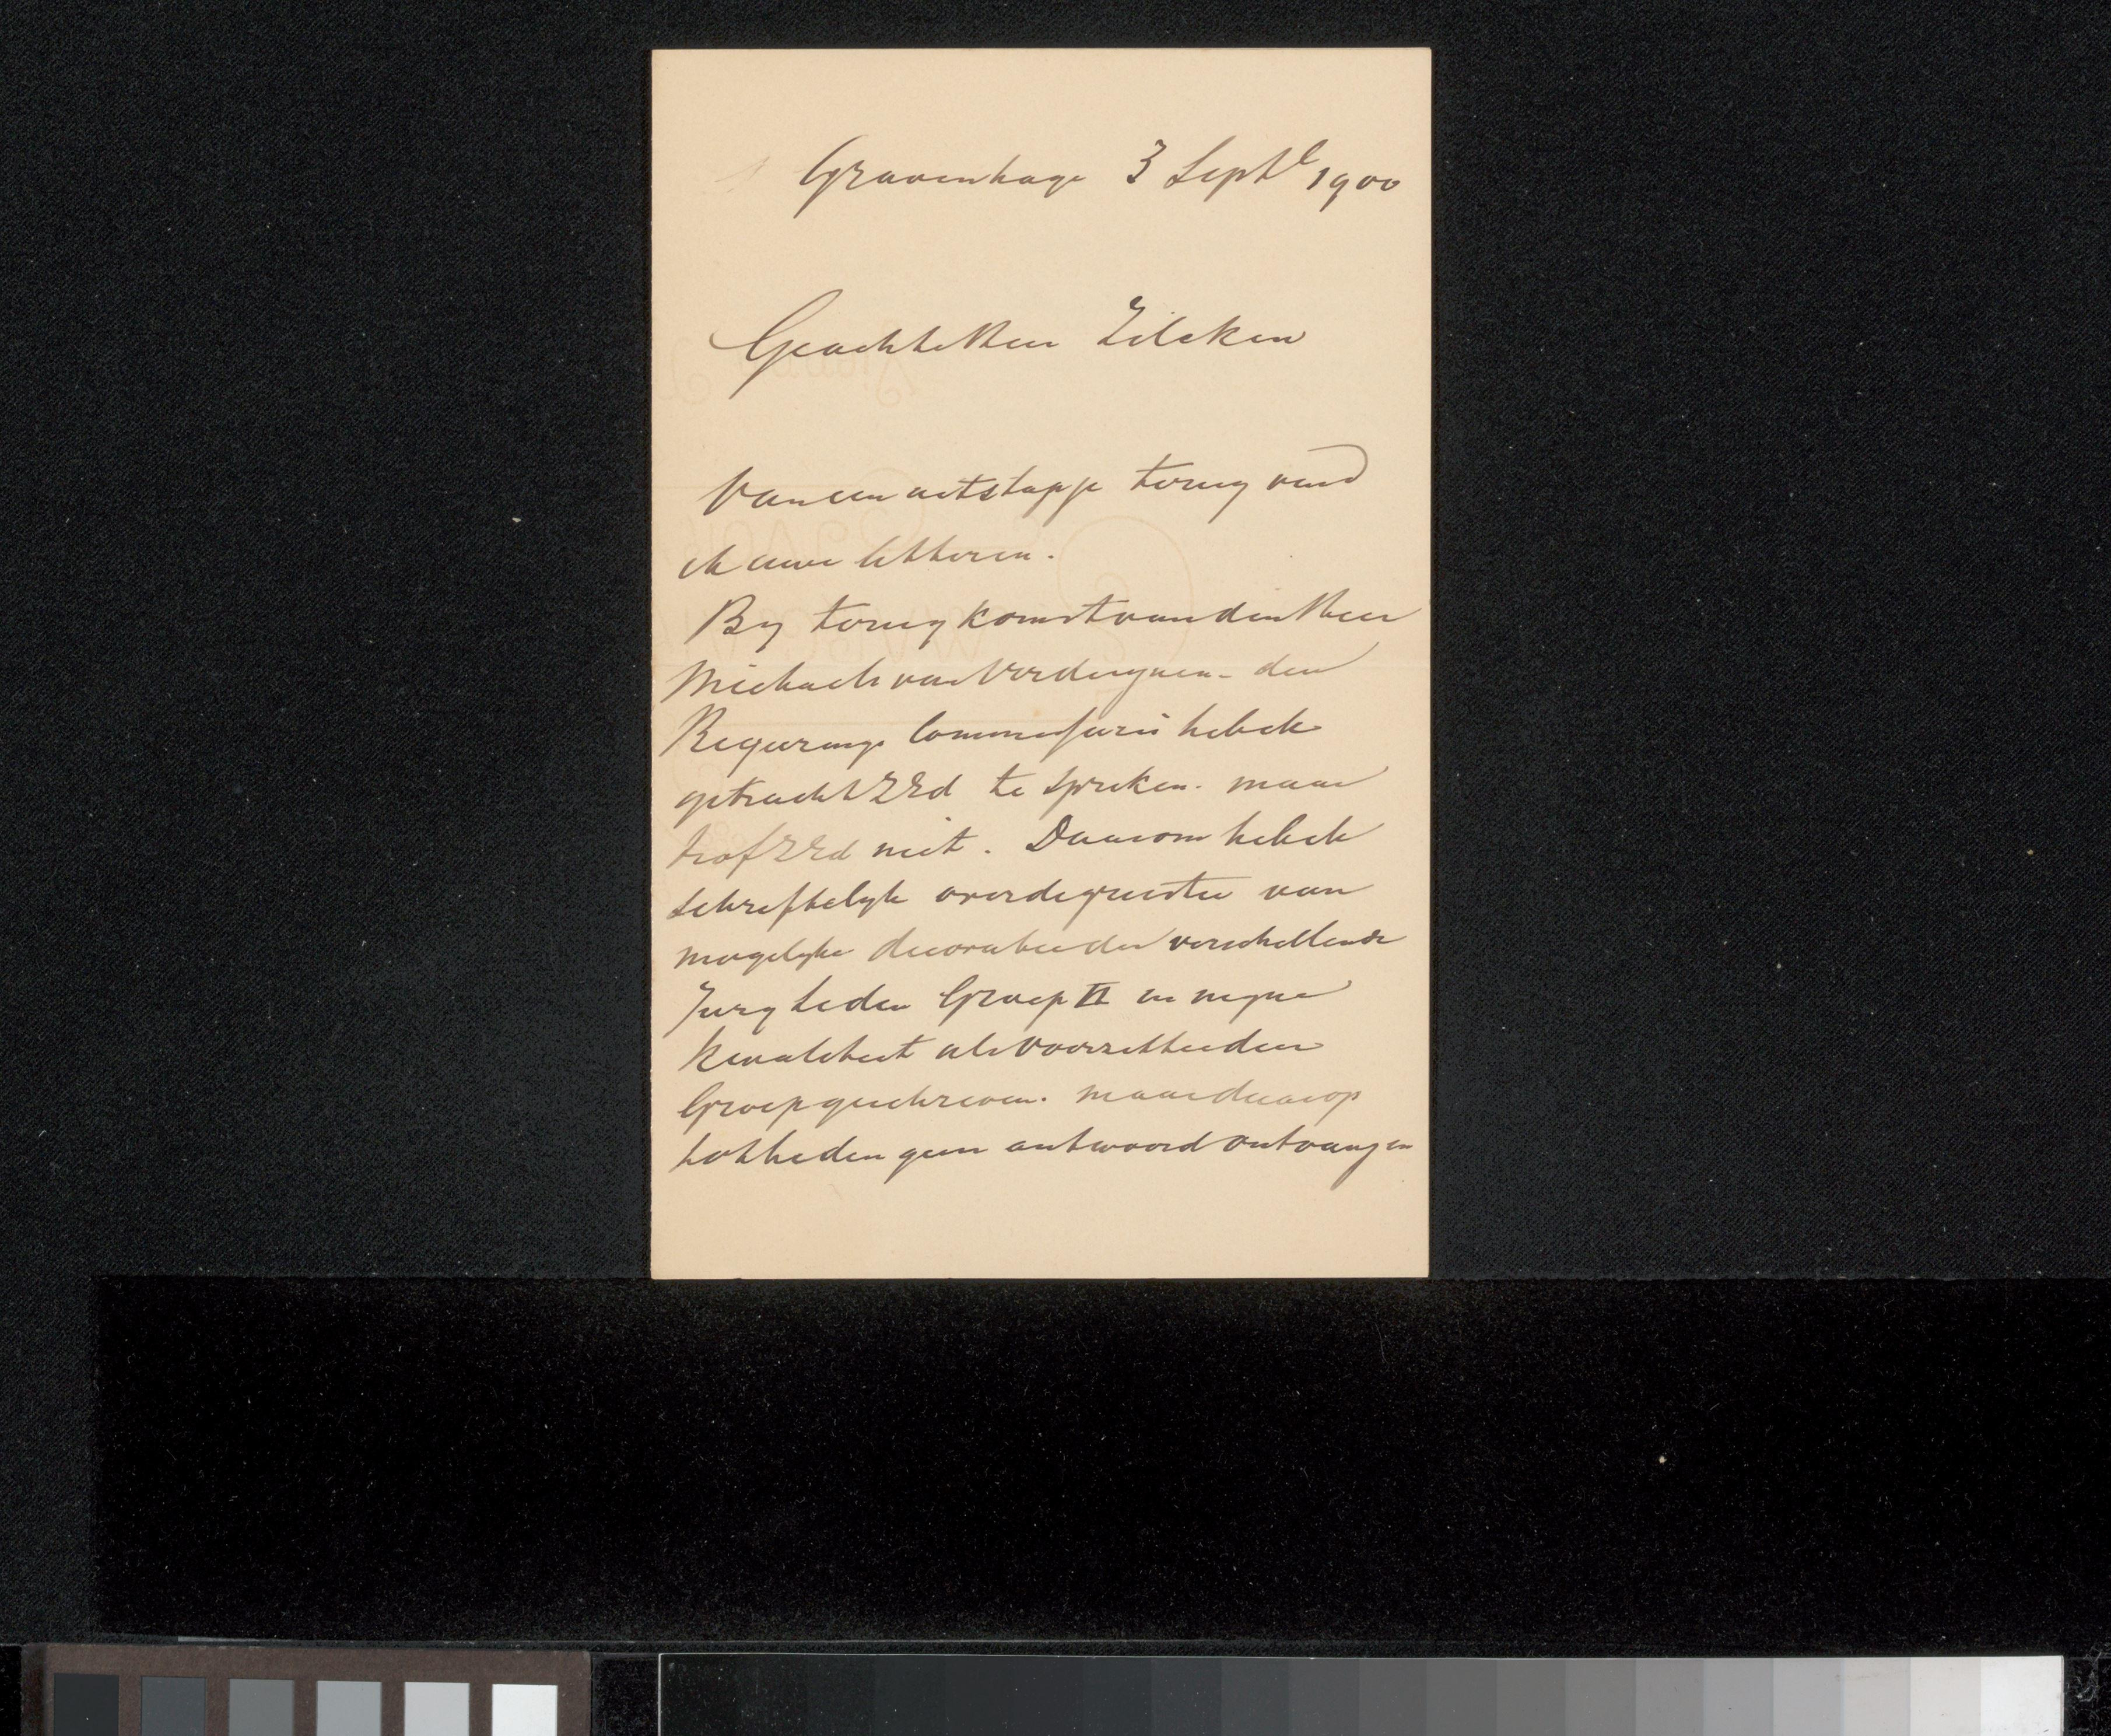 Gravenhage 3 Septb 1900
Geachte Heer Zilcken
Van een uitstapje terug vond
ik uwe letteren.
By terugkomst van den Heer
Michaels van Verduynen - den
Regeerings Commissaris heb ik
getracht ZEd te spreken. maar
trof ZEd niet. Daarom heb ik
schriftelyk over de questie van
mogelyke decoratie der verschillende
Jury Leden Groep II in myne
kwaliteit als voorzitter dier
Groep geschreven. maar daarop
tot heden geen antwoord ontvangen